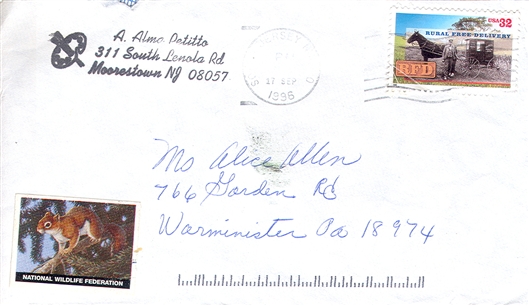 A. Alma Petitto
311 South Lenola Rd
Moorestown NJ 08057
17 SEP
1996
USA 32
RURAL FREE DELIVERY
RFD
Ms Alice Allen
766 Garden Rd
Warminister Pa 18974
NATIONAL WILDLIFE FEDERATION